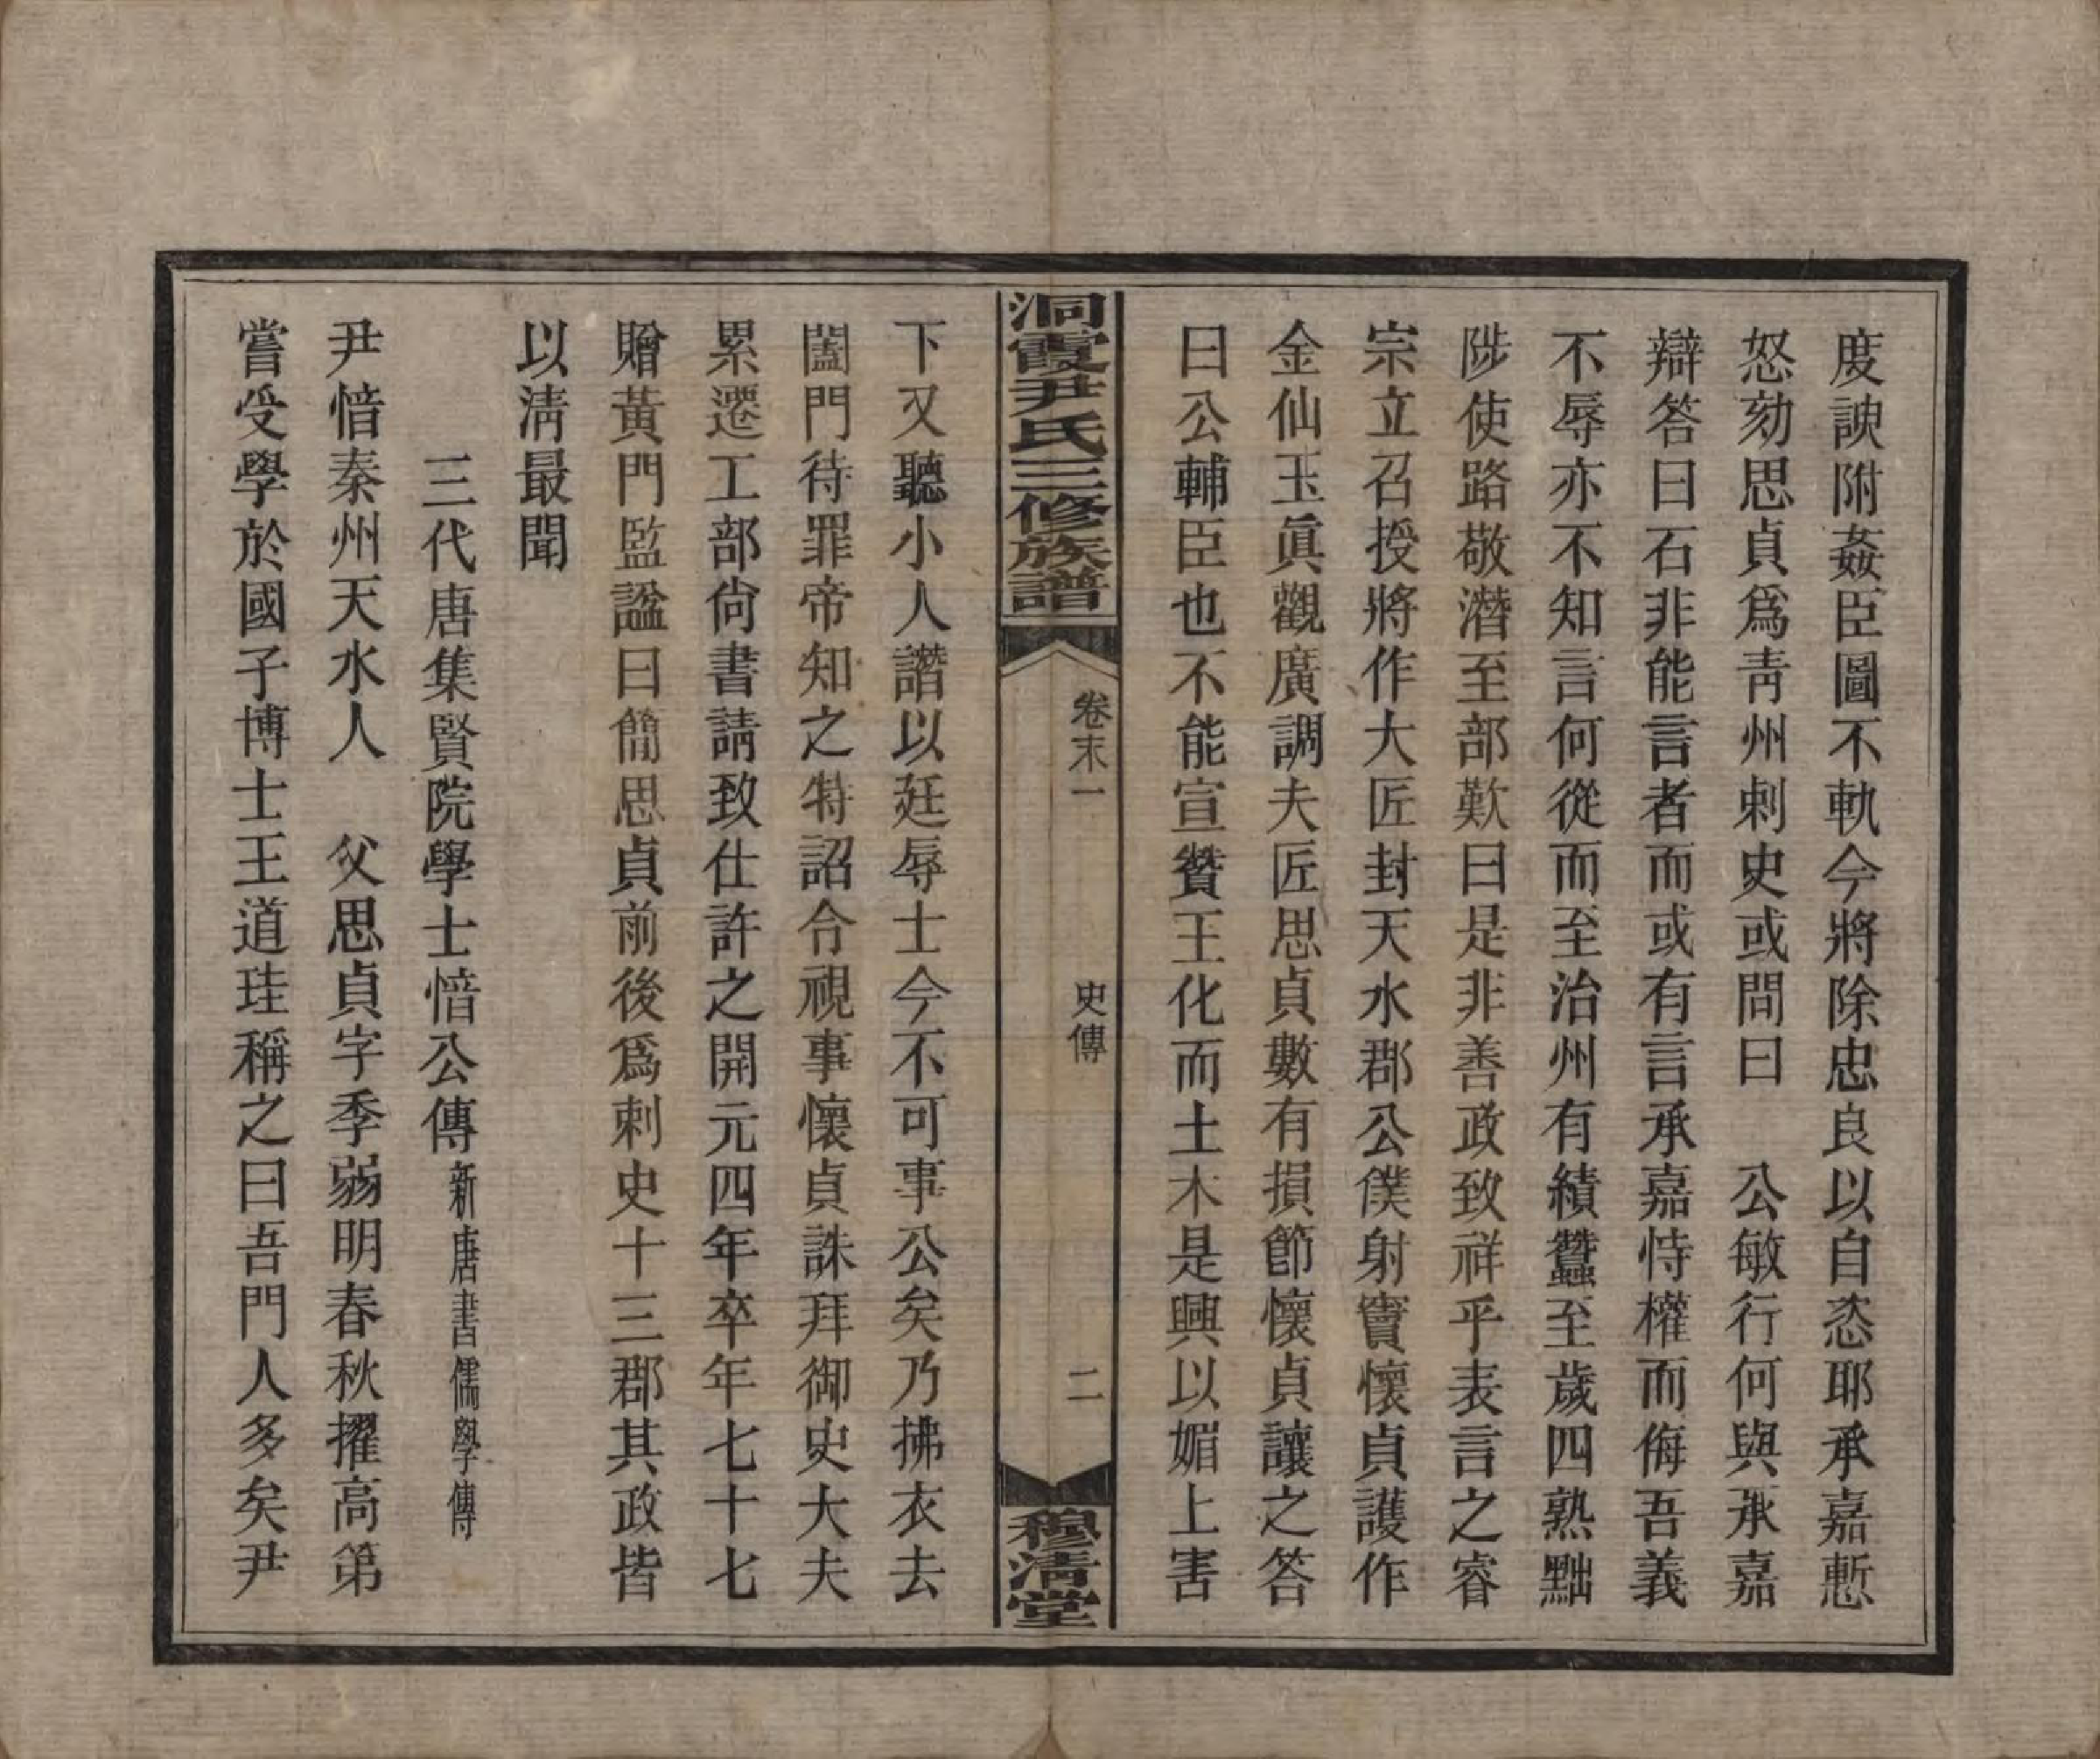 度諛附姦臣圖不軌今將除忠良以自恣耶承嘉慙
怒劾思貞爲靑州刺史或問曰　公敏行何與承嘉
辯答曰石非能言者而或有言承嘉恃權而侮吾義
不辱亦不知言何從而至治州有績蠶至歲四熟黜
陟使路敬潛至部歎曰是非善政致祥乎表言之睿
宗立召授將作大匠封天水郡公僕射竇懷貞護作
金仙玉眞觀廣調夫匠思貞數有損節懷貞讓之答
曰公輔臣也不能宣贊王化而土木是興以媚上害
洞霞尹氏三修族譜　卷末一　史傳　二　穆淸堂
下又聽小人譖以廷辱士今不可事公矣乃拂衣去
闔門待罪帝知之特詔令視事懷貞誅拜御史大夫
累遷工部尙書請致仕許之開元四年卒年七十七
贈黃門監諡曰簡思貞前後爲刺史十三郡其政皆
以淸最聞
三代唐集賢院學士愔公傳新唐書儒學傳
尹愔秦州天水人　父思貞字季弱明春秋擢高第
嘗受學於國子博士王道珪稱之曰吾門人多矣尹